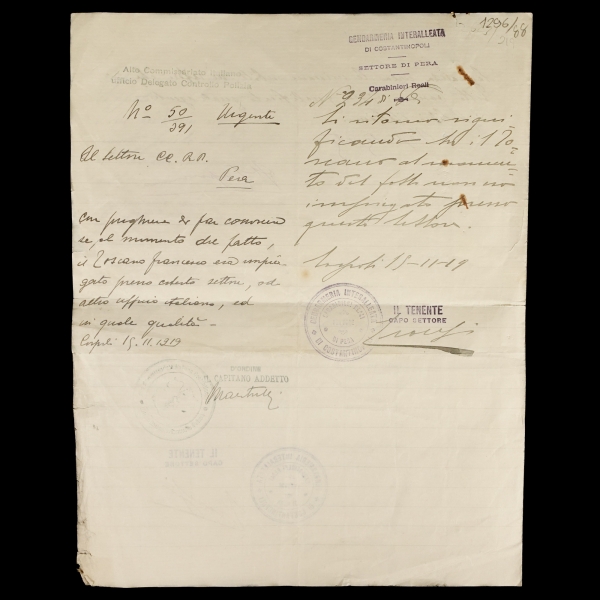 1296/88
GENDARMERIA INTERALLEATA
DI COSTANTINOPOLI
SETTORE DI PERA
Carabinieri Reali
Alto Commissariato Italiano
Ufficio Delegato Controllo Polizia
No 50/391 Urgente
Al Settore CC. RR.
Pera
con preghiera di far conoscere
se, al momento del fatto,
il Toscano Francesco era impie
gato presso codesto settore, od
altro ufficio italiano, ed
in quale qualità -
Cospoli 15.11.1919
No
Si ritorna signi
ficando che il To-
scano al momen-
to del fatto non era
impiegato presso
questo Settore.
Cospoli 15-11-19
IL TENENTE
CAPO SETTORE
D'ORDINE
IL CAPITANO ADDETTO
GENDARMERIA INTERALLEATA
DI COSTANTINOPOLI
IL TENENTE
CAPO SETTORE